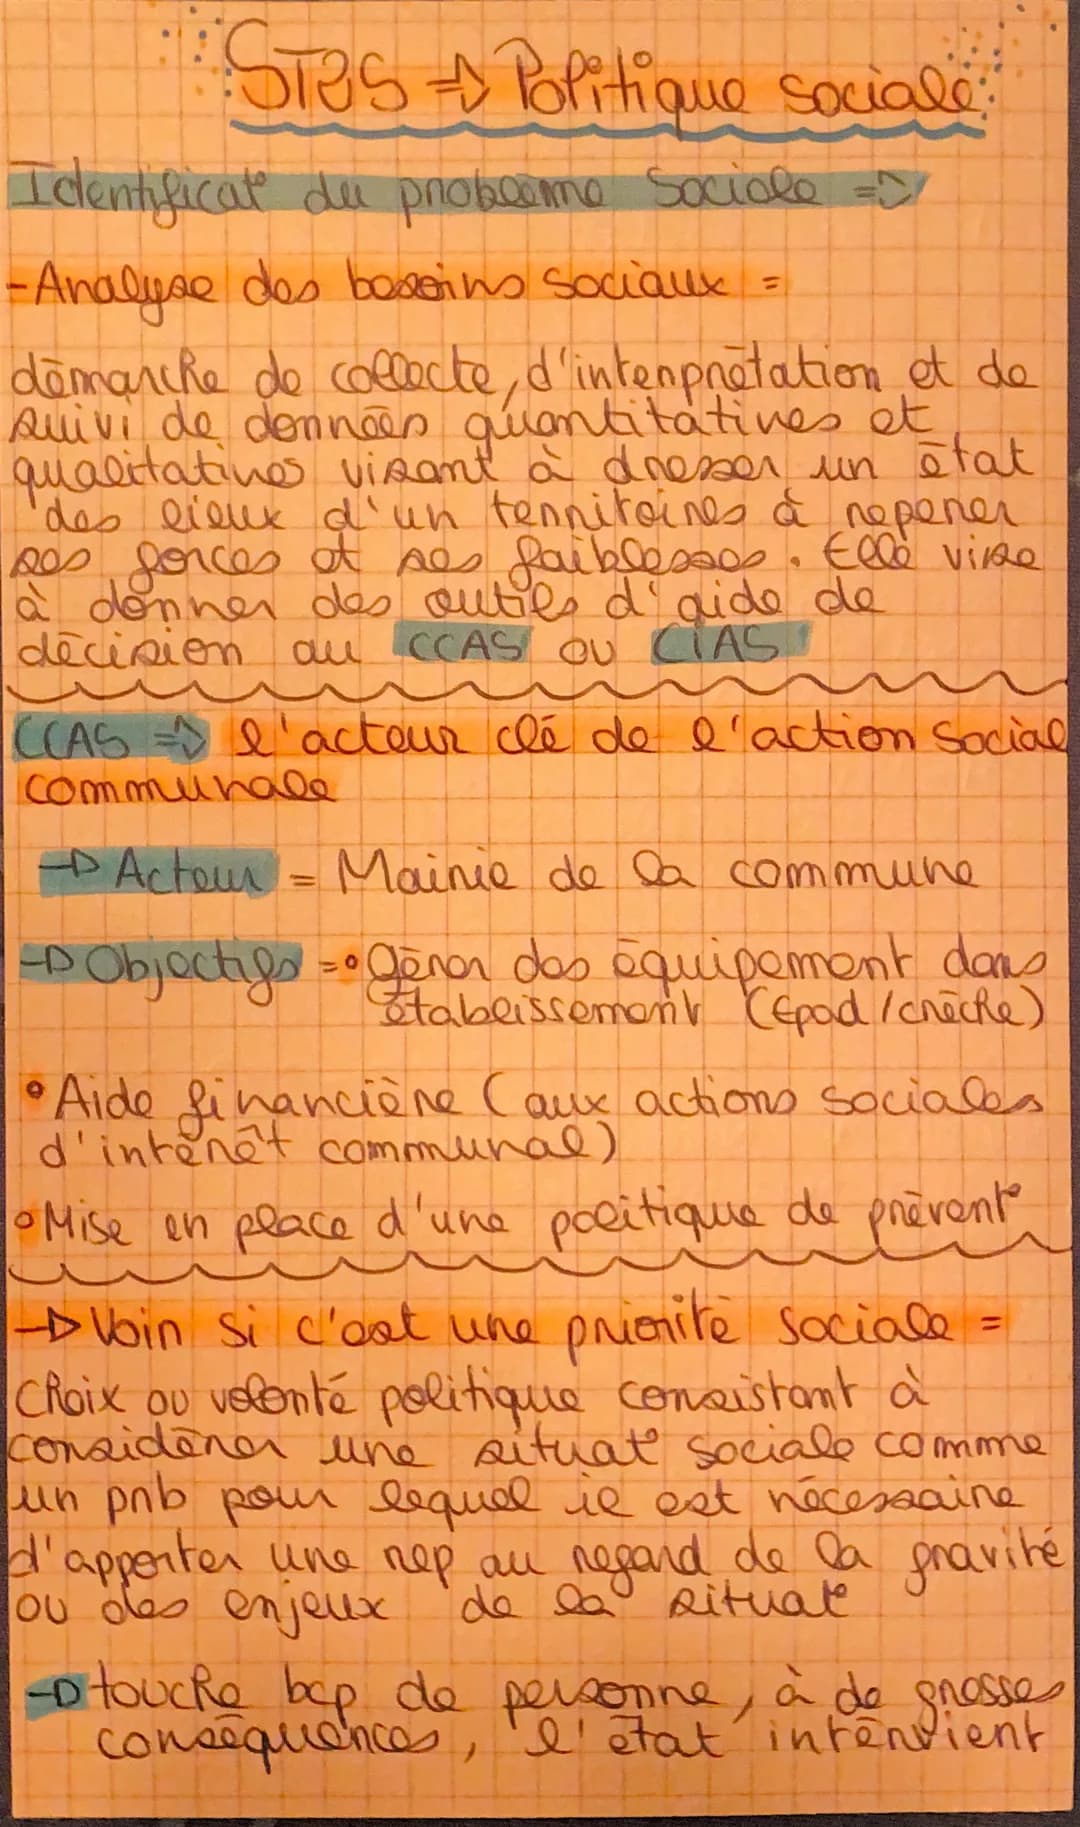 ST2S => Politique sociale
Identificat° du problème Sociale =>
-Analyse des besoins sociaux =
démarche de collecte, d'interprétation et de
suivi de données quantitatives et
qualitatives visant à dresser un état
des lieux d'un territoires à reperer
ses forces et ses faiblesses. Elle vise
à donner des outils d'aide de
décision au CCAS ou CIAS
CCAS => l'acteur clé de l'action Social
communale
-> Acteur = Mairie de la commune
-> Objectifs = • Gérer des équipement dans
établissement (Epad/crèche)
• Aide financière (aux actions sociales
d'intérêt communal)
• Mise en place d'une politique de prévent°
-> Voir si c'est une priorité sociale =
Choix ou volonté politique consistant à
considérer une situat° sociale comme
un prb pour lequel il est nécessaire
d'apporter une rep au regard de la gravité
ou des enjeux de la situat°
-> touche bcp de personne, à de grosses
conséquences, l'état intervient